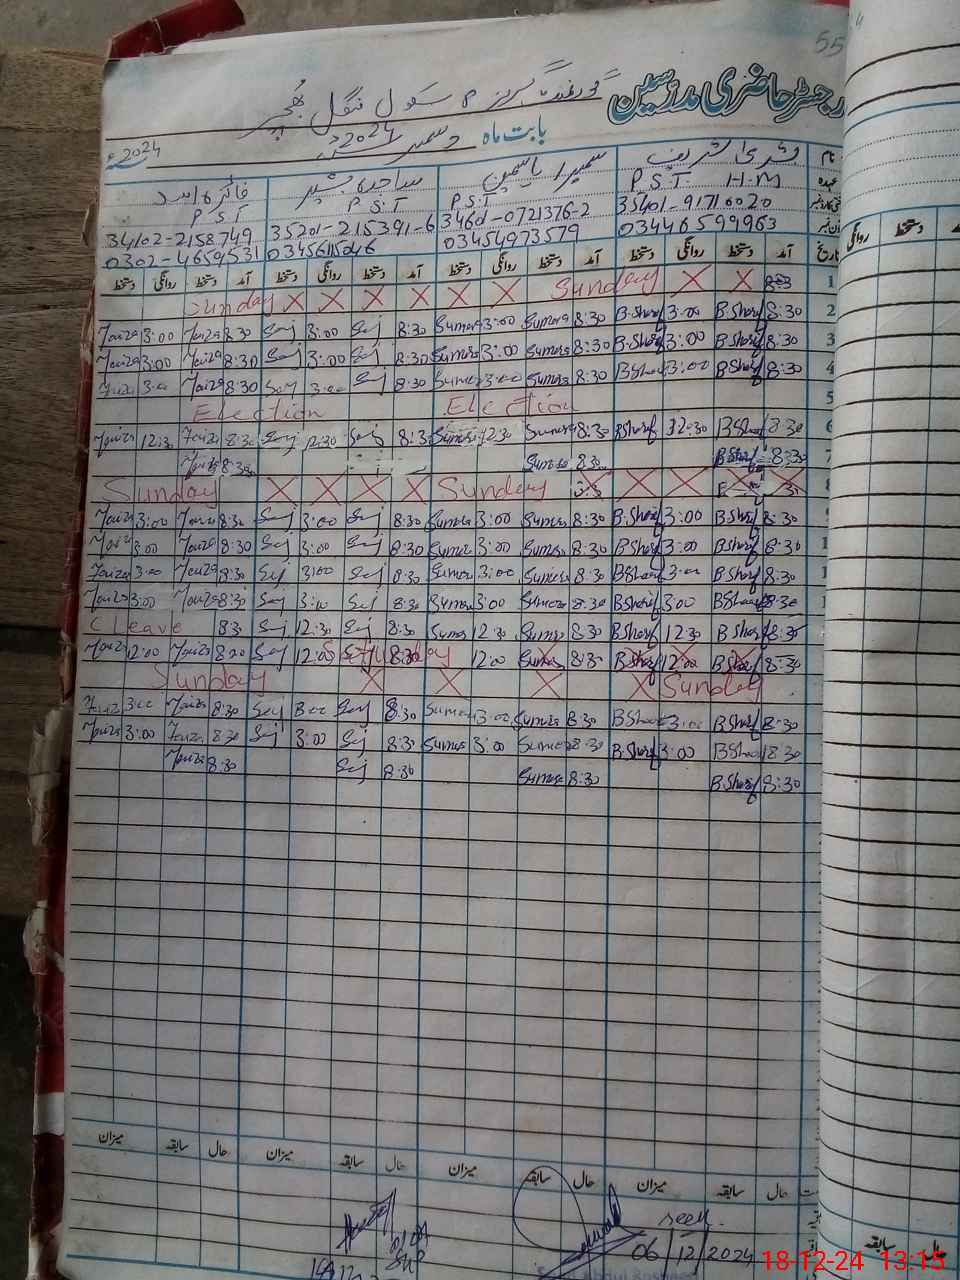 55
رجسٹر حاضری مدرسین
گورنمنٹ گرلز سکول
بابت ماہ دسمبر 2024
2024
نام بشریٰ شریف سمیرا یاسمین ساجدہ بشیر فائزہ
عہدہ P.S.T H.M P.S.T P.S.T P.S.T
35401-9171002 0 34601-0721376-2 35201-215391-6 34102-2158749
03446599963 03454973579 03456115046 0302-4659531
تاریخ آمد دستخط روانگی دستخط آمد دستخط روانگی دستخط آمد دستخط روانگی دستخط آمد دستخط روانگی دستخط
1 X X Sunday X X X X X X Sunday
2 8:30 B.Sharf 3:00 B.Sharf 8:30 Sumera 3:00 Sumera 8:30 Saj 3:00 Saj 8:30 Faiza 3:00 Faiza
3 8:30 B.Sharf 3:00 B.Sharf 8:30 Sumera 3:00 Sumera 8:30 Saj 3:00 Saj 8:30 Faiza 3:00 Faiza
4 8:30 B.Sharf 3:00 B.Sharf 8:30 Sumera 3:00 Sumera 8:30 Saj 3:00 Saj 8:30 Faiza 3:00 Faiza
5 Election Election
6 8:30 B.Sharf 12:30 B.Sharf 8:30 Sumera 12:30 Sumera 8:30 Saj 12:30 Saj 8:30 Faiza 12:30 Faiza
7 8:30 B.Sharf 8:30 Sumera 8:30 Faiza
8 X X X X Sunday X X X X Sunday
8:30 B.Sharf 3:00 B.Sharf 8:30 Sumera 3:00 Sumera 8:30 Saj 3:00 Saj 8:30 Faiza 3:00 Faiza
8:30 B.Sharf 3:00 B.Sharf 8:30 Sumera 3:00 Sumera 8:30 Saj 3:00 Saj 8:30 Faiza 3:00 Faiza
8:30 B.Sharf 3:00 B.Sharf 8:30 Sumera 3:00 Sumera 8:30 Saj 3:00 Saj 8:30 Faiza 3:00 Faiza
8:30 B.Sharf 3:00 B.Sharf 8:30 Sumera 3:00 Sumera 8:30 Saj 3:00 Saj 8:30 Faiza 3:00 Faiza
8:30 B.Sharf 12:30 B.Sharf 8:30 Sumera 12:30 Sumera 8:30 Saj 12:30 Saj 8:30 C leave
8:30 B.Sharf 12:00 B.Sharf 8:30 Sumera 12:00 8:30 Saj 12:00 Saj 8:30 Faiza 12:00 Faiza
Sunday X X X X Sunday
8:30 B.Sharf 3:00 B.Sharf 8:30 Sumera 3:00 Sumera 8:30 Saj 3:00 Saj 8:30 Faiza 3:00 Faiza
8:30 B.Sharf 3:00 B.Sharf 8:30 Sumera 3:00 Sumera 8:30 Saj 3:00 Saj 8:30 Faiza 3:00 Faiza
8:30 B.Sharf 8:30 Sumera 8:30 Saj 8:30 Faiza
حال سابقہ میزان حال سابقہ میزان حال سابقہ میزان حال سابقہ میزان
seen
06/12/2024
دستخط روانگی
حال سابقہ
18-12-24 13:15